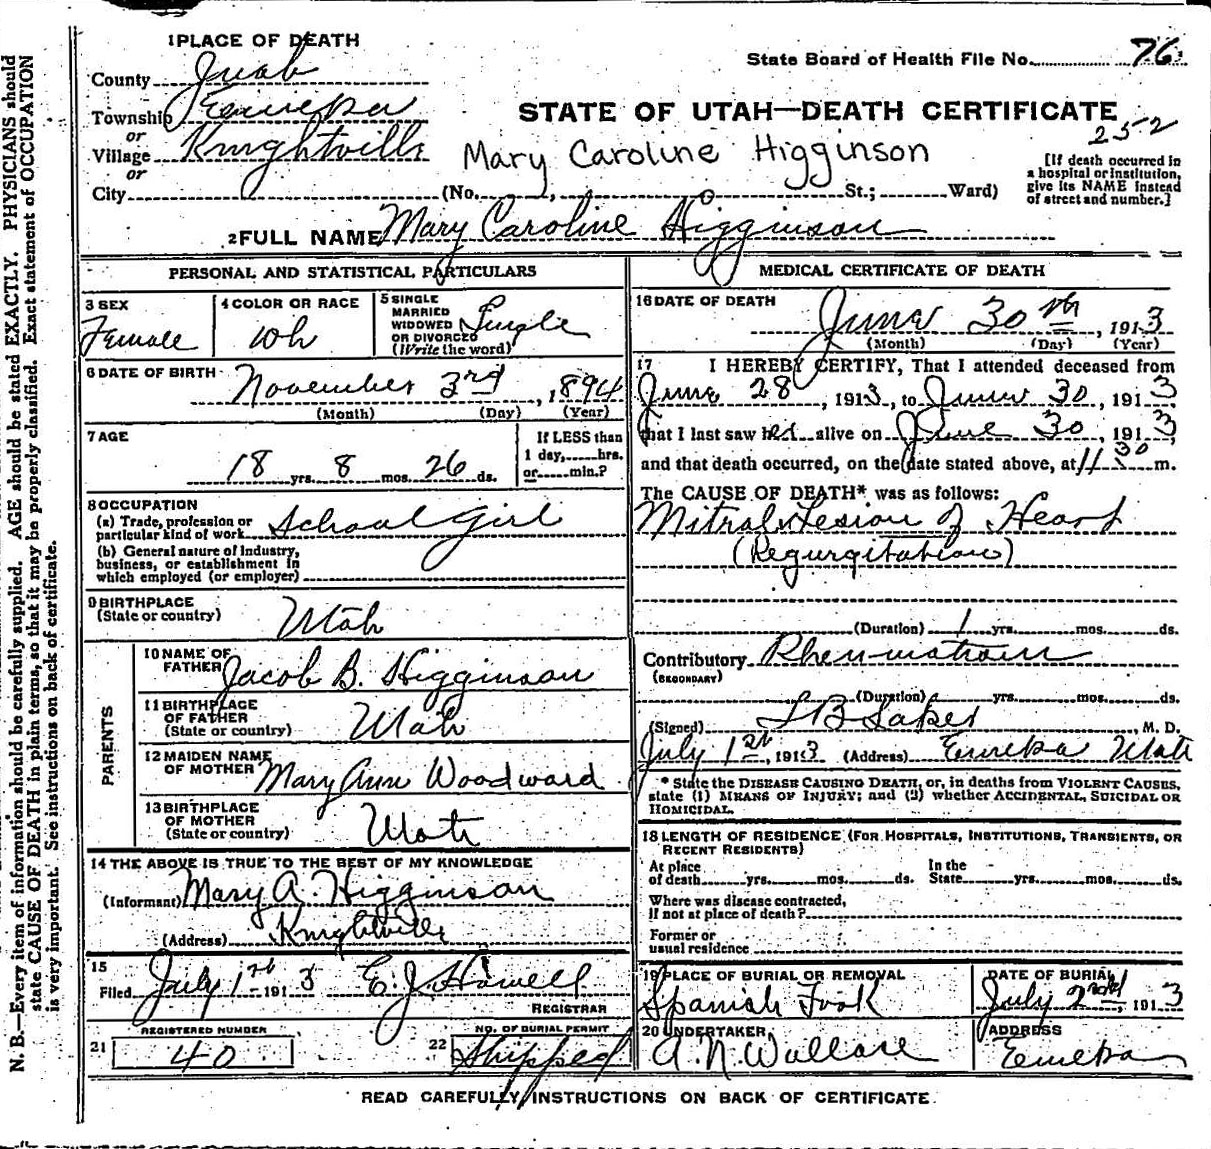 1 PLACE OF DEATH
County Juab
State Board of Health File No. 76
Township Eureka
or
Village Knightville
or
City
STATE OF UTAH—DEATH CERTIFICATE
252
Mary Caroline Higginson
(No. , St.; Ward)
[If death occurred in
a hospital or institution,
give its NAME instead
of street and number.]
2 FULL NAME Mary Caroline Higginson
PERSONAL AND STATISTICAL PARTICULARS
3 SEX
Female
4 COLOR OR RACE
Wh
5 SINGLE
MARRIED
WIDOWED
OR DIVORCED
(Write the word)
Single
6 DATE OF BIRTH
November 3rd, 1894
(Month) (Day) (Year)
7 AGE
18 yrs. 8 mos. 26 ds.
If LESS than
1 day, hrs.
or min.?
8 OCCUPATION
(a) Trade, profession or
particular kind of work School Girl
(b) General nature of industry,
business, or establishment in
which employed (or employer)
9 BIRTHPLACE
(State or country) Utah
PARENTS
10 NAME OF
FATHER Jacob B. Higginson
11 BIRTHPLACE
OF FATHER
(State or country) Utah
12 MAIDEN NAME
OF MOTHER Mary Ann Woodward
13 BIRTHPLACE
OF MOTHER
(State or country) Utah
14 THE ABOVE IS TRUE TO THE BEST OF MY KNOWLEDGE
(Informant) Mary A. Higginson
(Address) Knightville
15
Filed July 1st 1913 E. J. Howell
REGISTRAR
21 REGISTERED NUMBER
40
22 NO. OF BURIAL PERMIT
Shipped
MEDICAL CERTIFICATE OF DEATH
16 DATE OF DEATH
June 30th, 1913
(Month) (Day) (Year)
17 I HEREBY CERTIFY, That I attended deceased from
June 28, 1913, to June 30, 1913
that I last saw her alive on June 30, 1913,
and that death occurred, on the date stated above, at 11 30 m.
The CAUSE OF DEATH* was as follows:
Mitral Lesion of Heart
(Regurgitation)
(Duration) 1 yrs. mos. ds.
Contributory Rheumatism
(SECONDARY)
(Duration) yrs. mos. ds.
(Signed) M. D.
July 1st, 1913 (Address) Eureka Utah
* State the DISEASE CAUSING DEATH, or, in deaths from VIOLENT CAUSES,
state (1) MEANS OF INJURY; and (2) whether ACCIDENTAL, SUICIDAL OR
HOMICIDAL.
18 LENGTH OF RESIDENCE (FOR HOSPITALS, INSTITUTIONS, TRANSIENTS, OR
RECENT RESIDENTS)
At place
of death yrs. mos. ds.
In the
State yrs. mos. ds.
Where was disease contracted,
if not at place of death?
Former or
usual residence
19 PLACE OF BURIAL OR REMOVAL
Spanish Fork
DATE OF BURIAL
July 2nd, 1913
20 UNDERTAKER
A. N. Wallace
ADDRESS
Eureka
READ CAREFULLY INSTRUCTIONS ON BACK OF CERTIFICATE.
N. B.—Every item of information should be carefully supplied. AGE should be stated EXACTLY. PHYSICIANS should
state CAUSE OF DEATH in plain terms, so that it may be properly classified. Exact statement of OCCUPATION
is very important. See instructions on back of certificate.